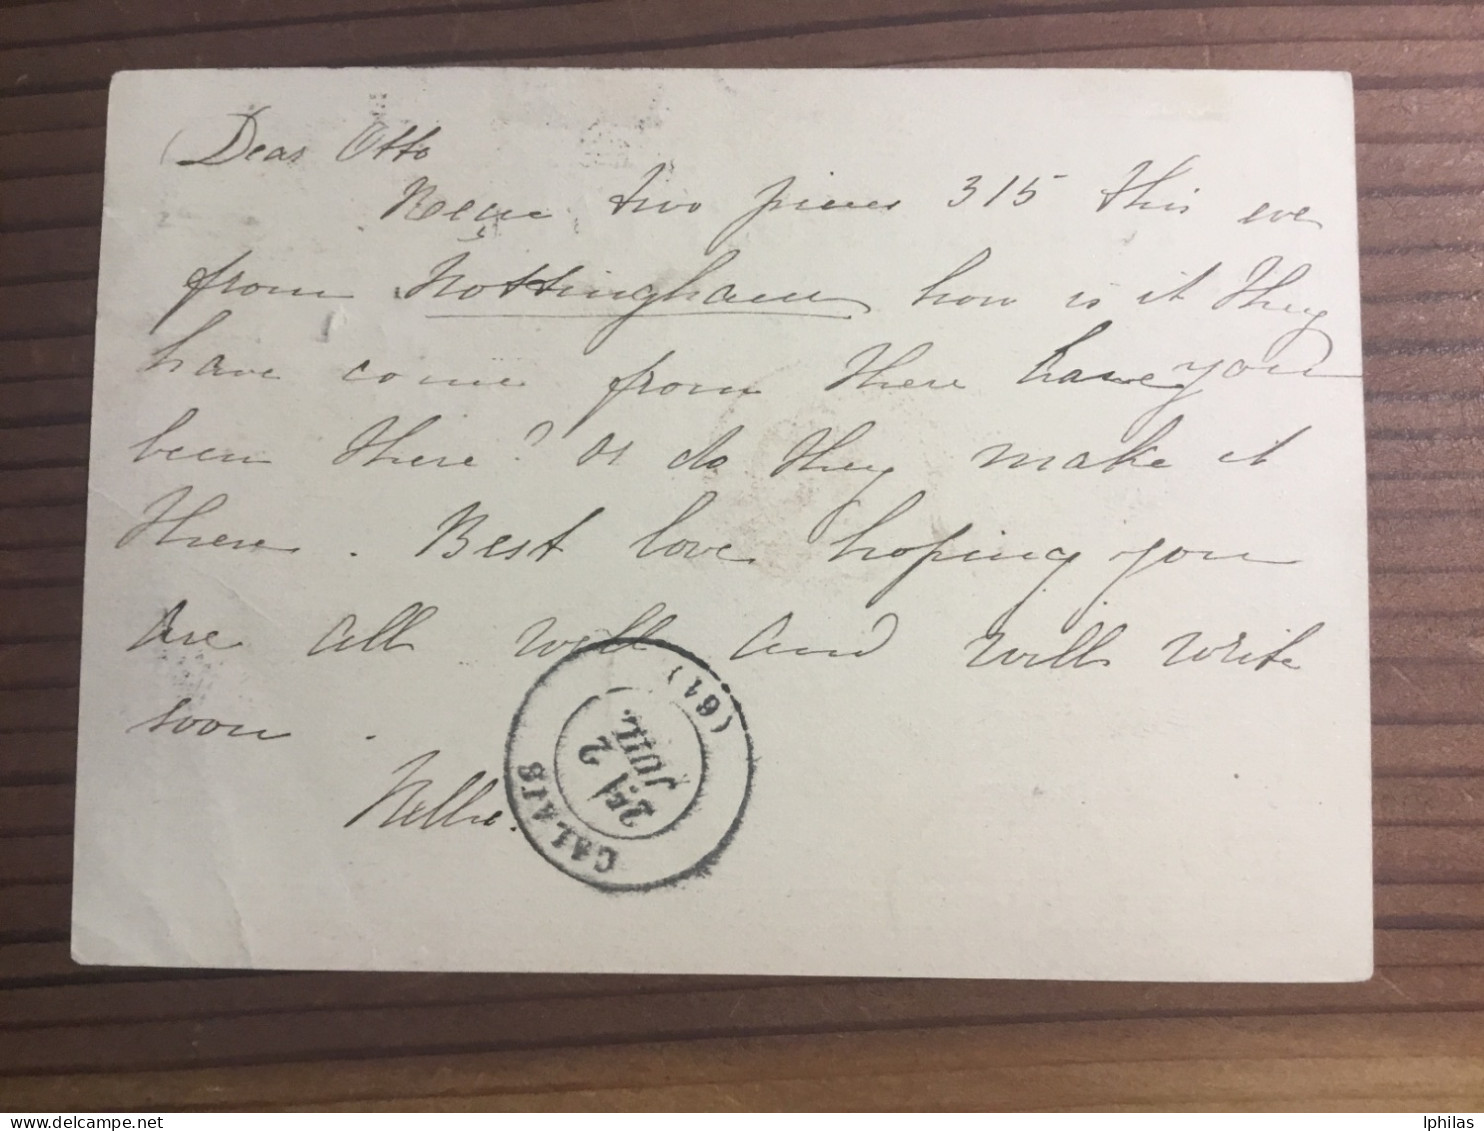 Dear Otto
two pieces 315 this eve
from Nottingham how is it they
have come from there have you
been there? or do they make it
there. Best love hoping you
are all well and will write
soon.
Nellie.
CALAIS (61)
2E/ 2 JUIL.
lphilas